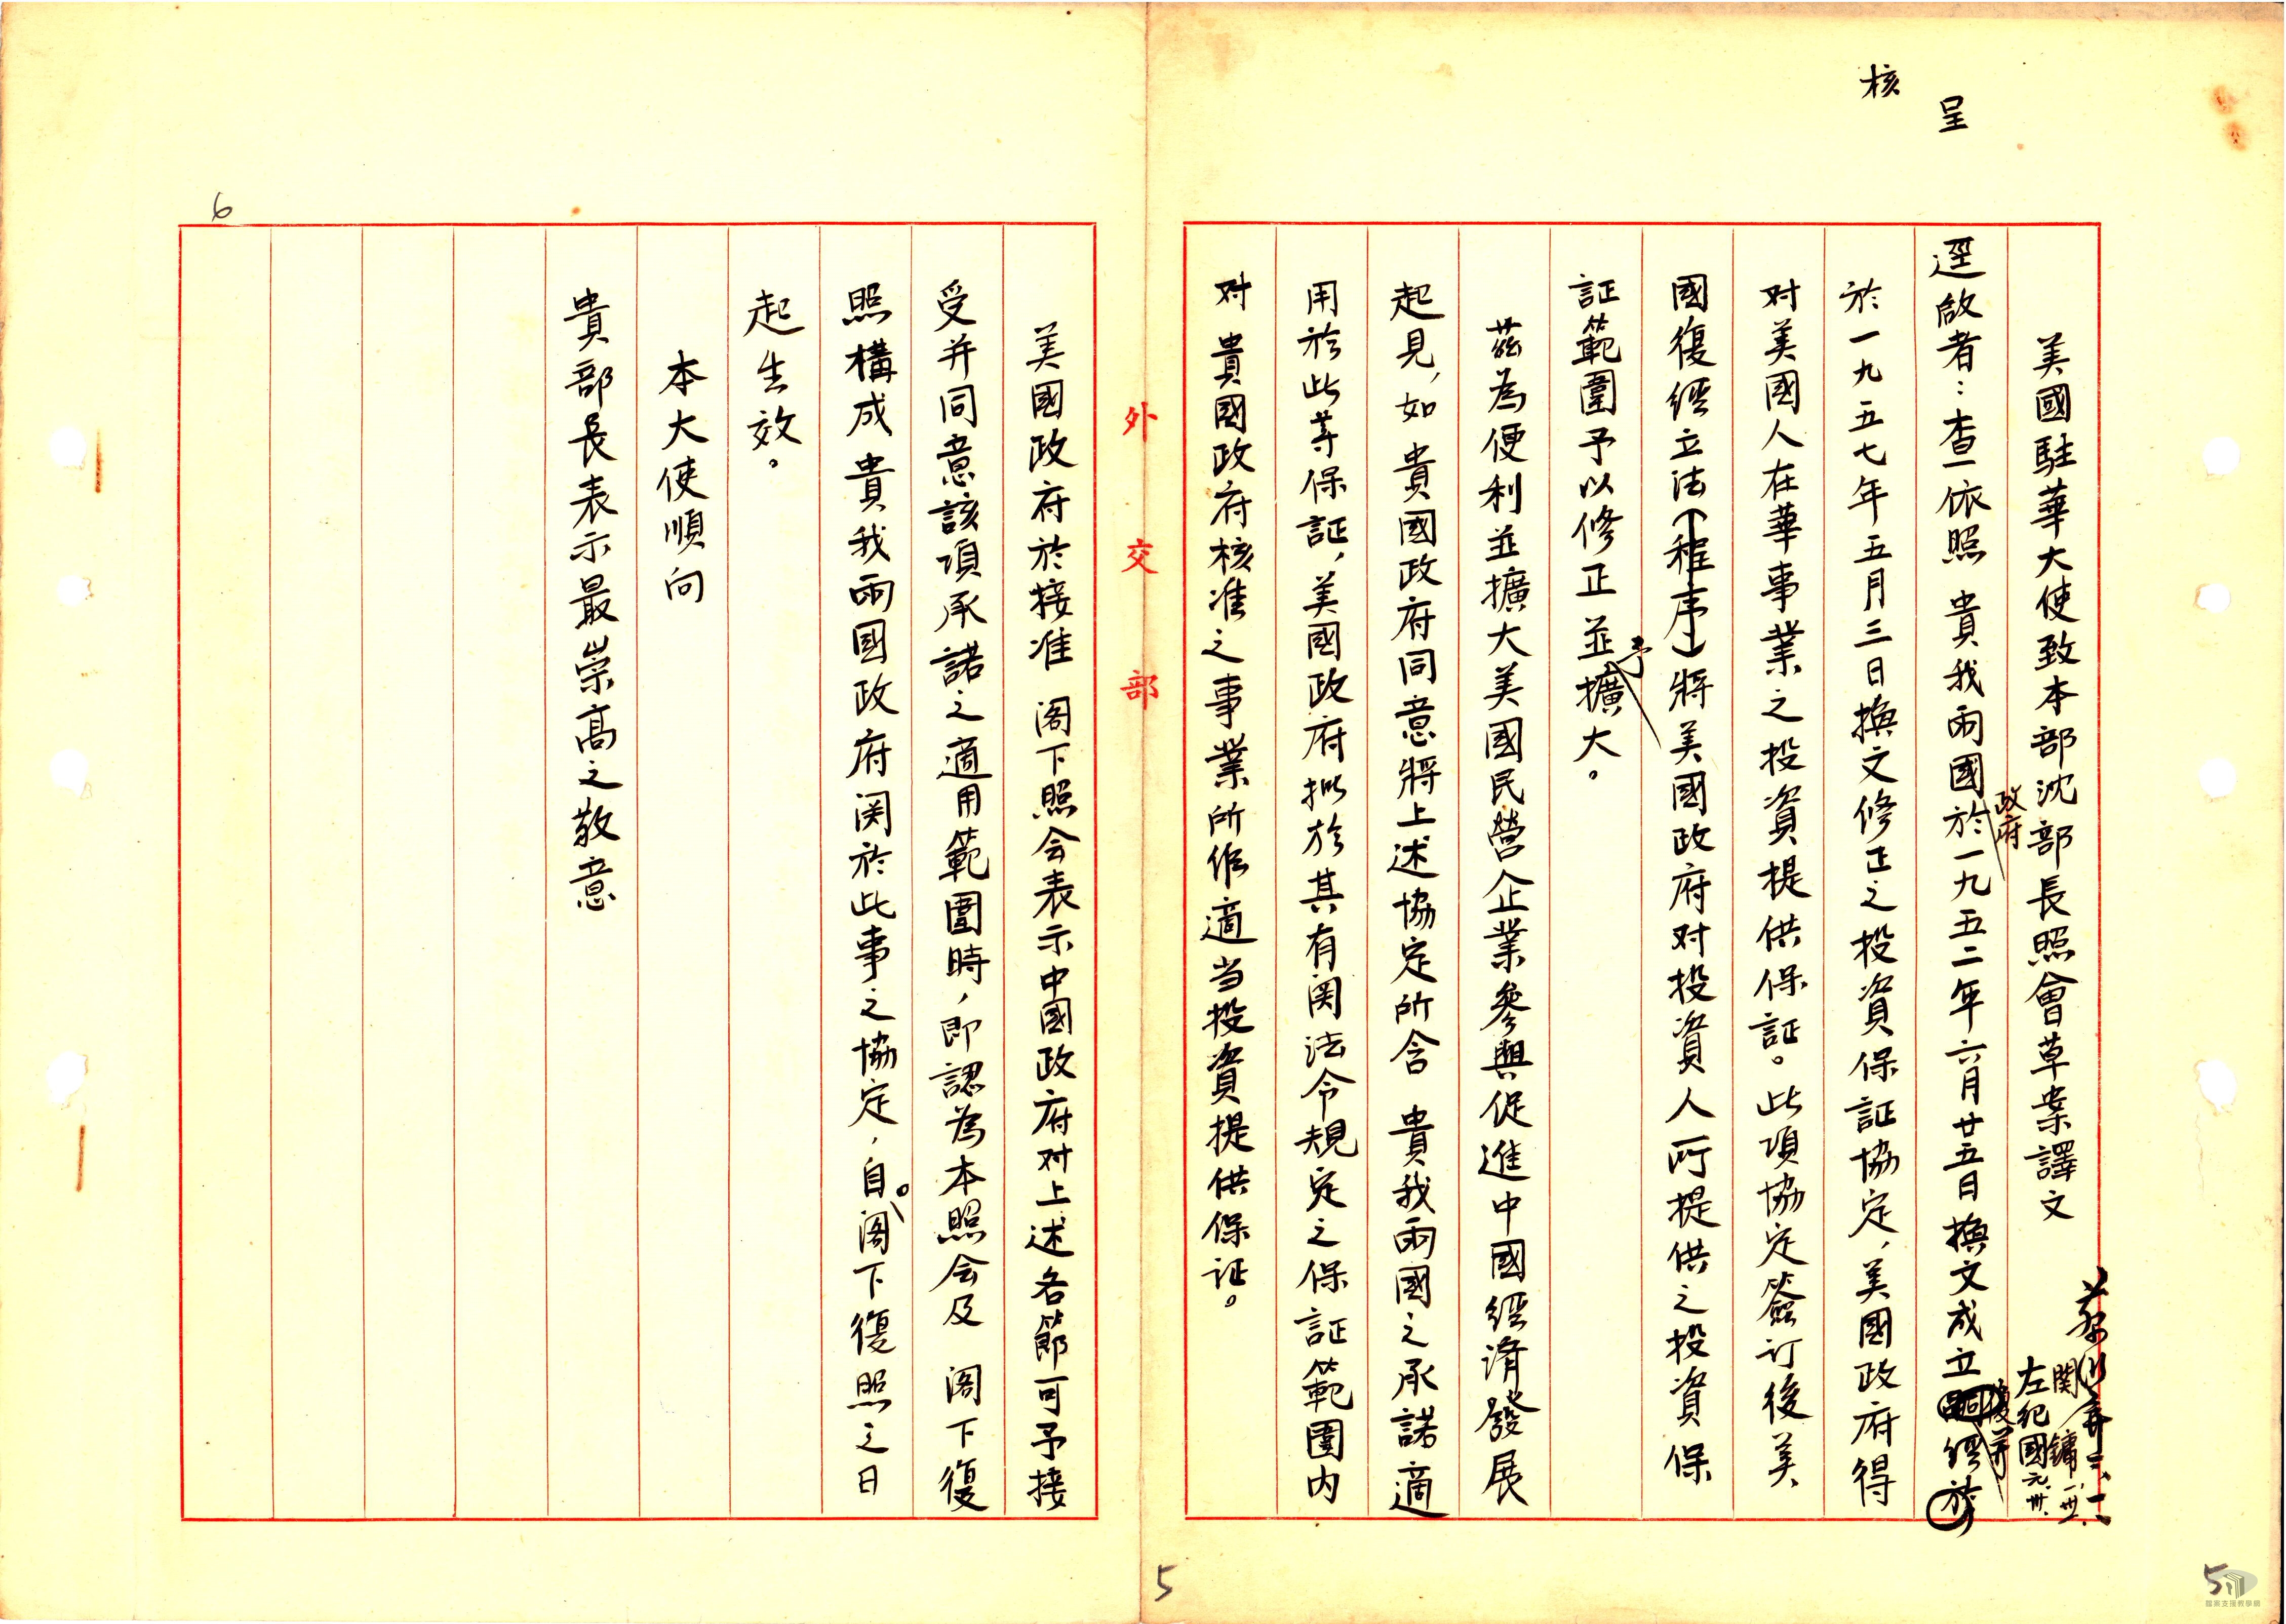 呈
核
美國駐華大使致本部沈部長照會草案譯文
左紀國元、卅、
関鏞一、卅一、
逕啟者：查依照 貴我兩國政府於一九五二年六月廿五日換文成立復并經於
於一九五七年五月三日換文修正之投資保証協定，美國政府得
对美國人在華事業之投資提供保証。此項協定簽訂後美
國復經立法（程序）將美國政府对投資人所提供之投資保
証範圍予以修正並予擴大。
茲為便利並擴大美國民營企業參與促進中國經濟發展
起見，如 貴國政府同意將上述協定所含 貴我兩國之承諾適
用於此等保証，美國政府拟於其有関法令規定之保証範圍内
对 貴國政府核准之事業所作適当投資提供保证。
外交部
5
6
美國政府於接准 阁下照会表示中國政府对上述各節可予接
受并同意該項承諾之適用範圍時，即認為本照会及 阁下復
照構成 貴我兩國政府関於此事之協定，自。阁下復照之日
起生效。
本大使順向
貴部長表示最崇高之敬意
5
檔案支援教學網